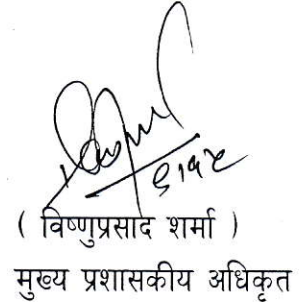 ( विष्णुप्रसाद शर्मा )
मुख्य प्रशासकीय अधिकृत